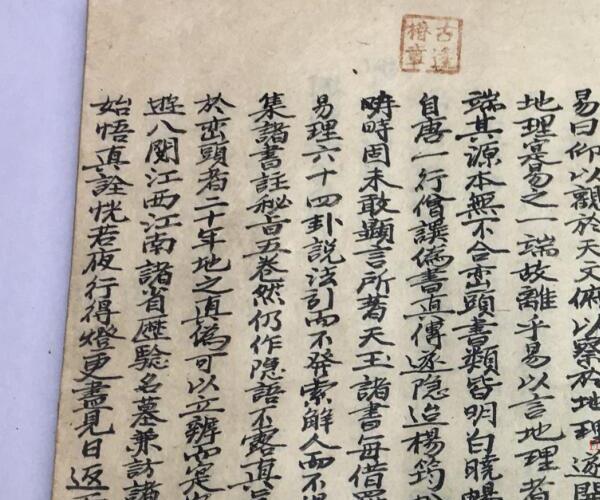 易曰仰以觀於天文俯以察於地理遂
地理寔易之一端故離乎易以言地理者
端其源本無不合巒頭書類皆明白曉暢
自唐一行僧譔偽書真傳遂隱迨楊筠
時固未敢顯言所著天玉諸書每借
易理六十四卦說法引而不發索解人而不
集諸書註秘旨五卷然仍作隱語不露真
於巒頭者二十年地之真偽可以立辨而定
遊八閩江西江南諸省歷驗名墓兼訪諸
始悟真詮恍若夜行得燈更盡見日返
古逢章